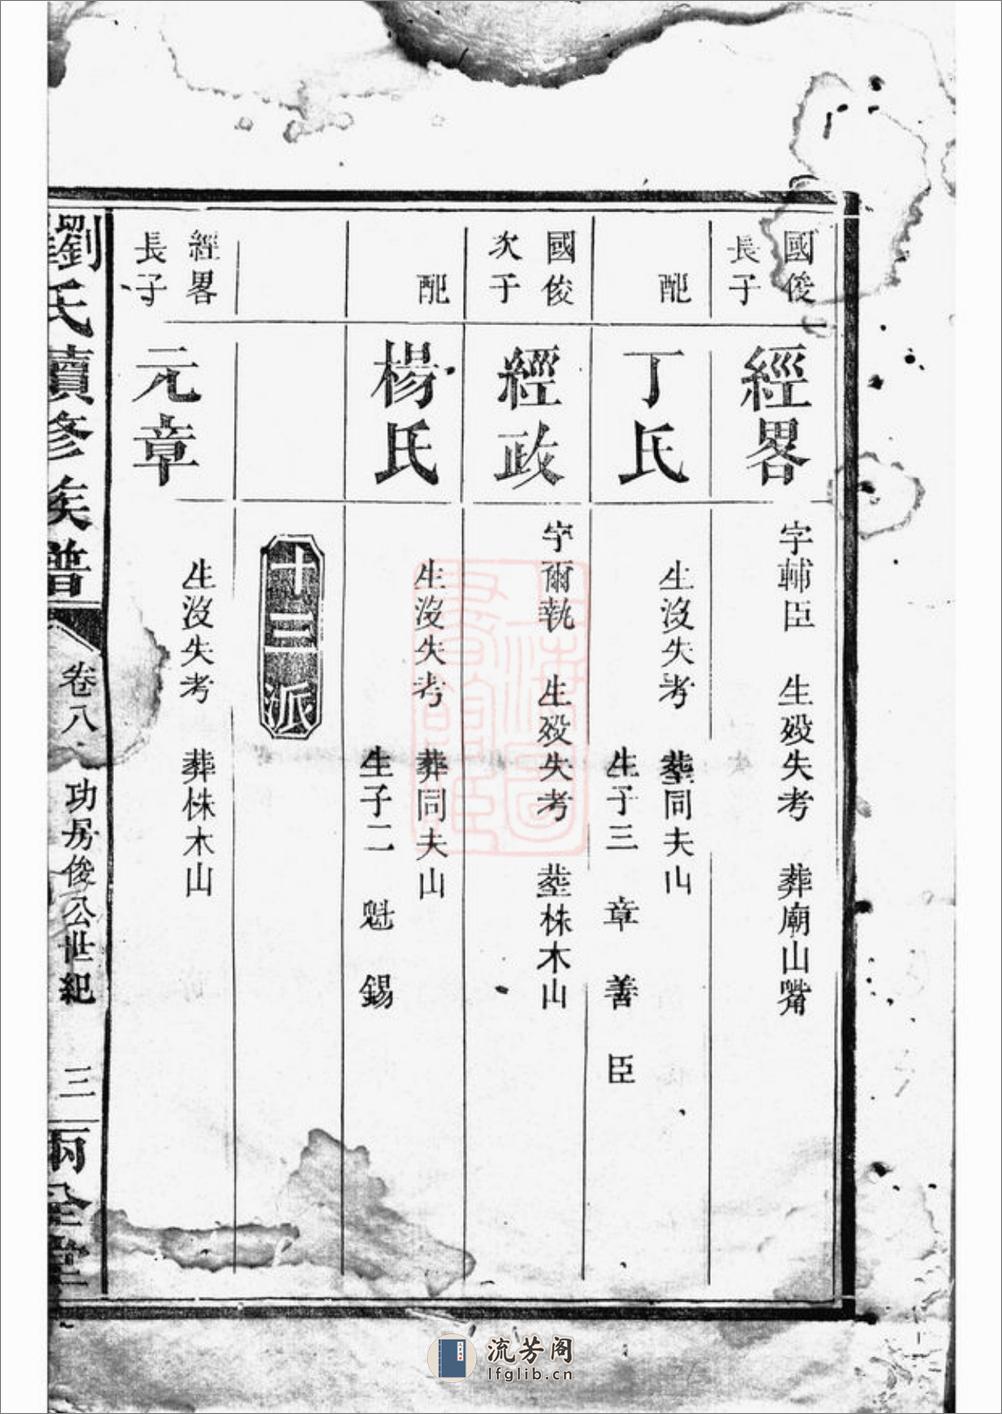 國俊長子
經畧
字輔臣 生殁失考 葬廟山嘴
配
丁氏
生沒失考 塟同夫山
生子三 章 善 臣
國俊次子
經政
字爾執 生殁失考 塟株木山
配
楊氏
生沒失考 葬同夫山
生子二 魁 錫
十三派
經畧長子
元章
生沒失考 葬株木山
劉氏續修族譜
卷八 功房俊公世紀 三
兩全堂
流芳阁
lfglib.cn